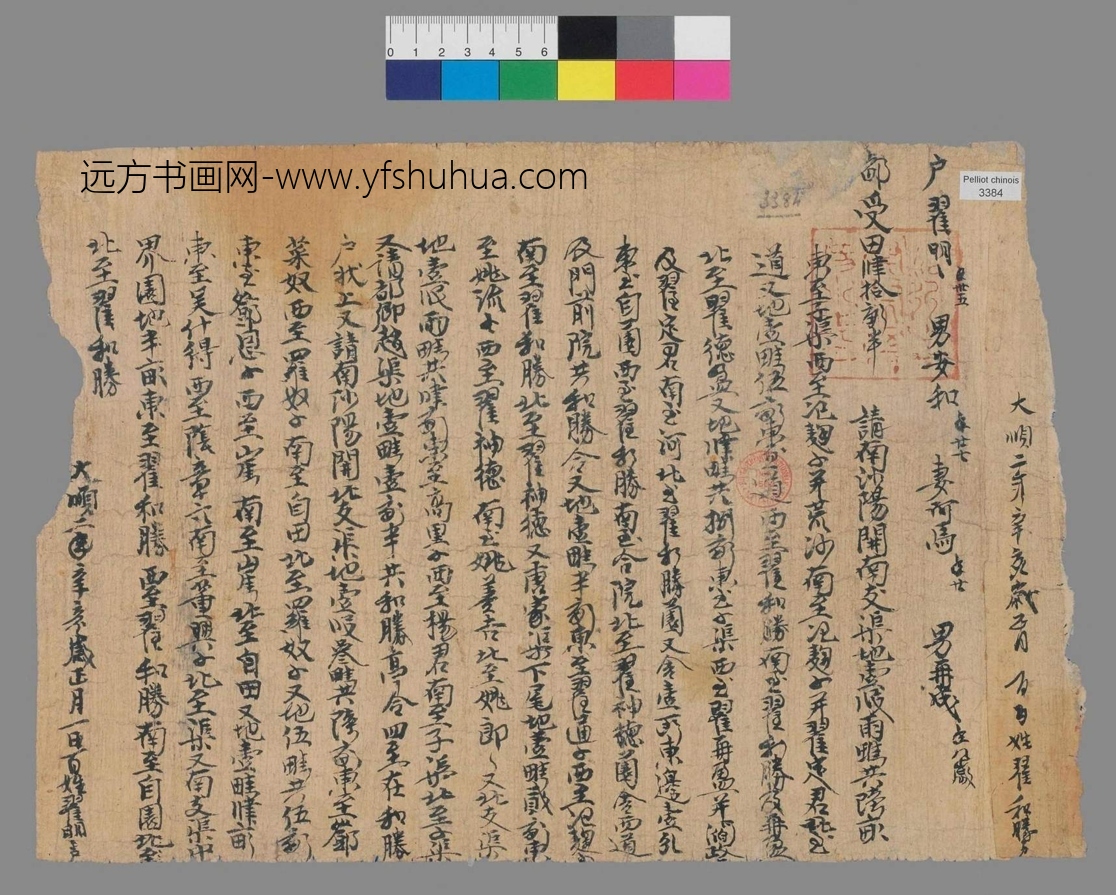 0 1 2 3 4 5 6
远方书画网-www.yfshuhua.com
Pelliot chinois
3384
3384
大順二年辛亥歲正月 百姓翟和勝
户翟明明年卅五 男安和年廿七 妻阿馬年廿 男再成年八歲
都受田肆拾畝半 請南沙陽開南支渠地壹段兩畦共陸畝
東至子渠西至氾麴子并荒沙南至氾麴子并翟定君北至
道又地壹畦伍畝東至道西至翟和勝南至翟和勝及再盈
北至翟德盈又地肆畦共捌畝東至子渠西至翟再盈并
及翟定君南至河北至翟和勝園又舍壹所東邊壹孔
東至自園西至翟和勝南至合院北至翟神德園舍西道
及門前院共和勝合又地壹畦半畝東至翟通子西至氾麴
南至翟和勝北至翟神德又唐家渠下尾地壹畦貳畝東
至姚流子西至翟神德南至姚善吉北至姚郎郎又北支渠
地壹段兩畦共肆畝東至高黑子西至楊君南至子渠北至子渠
又請都鄉趙渠地壹畦壹畝半共和勝亭合四至在和勝
户狀上又請南沙陽開北支渠地壹段叁畦共陸畝東至鄧
菜奴西至羅奴子南至自田北至羅奴子又地伍畦共伍畝
東至鄧恩子西至崖南至崖北至自田又地壹畦肆畝
東至吴什得西至陰章六南至董興子北至渠又南支渠中
界園地半畝東至翟和勝西至翟和勝南至自園北至
北至翟和勝
大順二年辛亥歲正月一日百姓翟明明